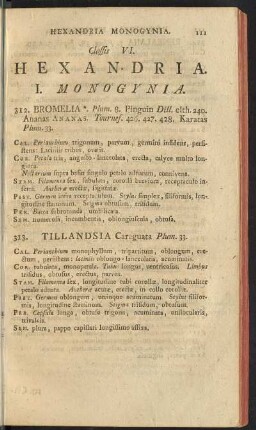 HEXANDRIA MONOGYNIA. 111
Classis VI.
HEXANDRIA.
I. MONOGYNIA.
312. BROMELIA *. Plum. 8. Pinguin Dill. elth. 240.
Ananas ANANAS. Tournef. 426. 427. 428. Karatas
Plum. 33.
CAL. Perianthium trigonum, parvum, germini insidens, persi-
stens: Laciniis tribus, ovatis.
COR. Petala tria, angusto-lanceolata, erecta, calyce multo lon-
giora.
Nectarium supra basin singulo petalo adnatum, connivens.
STAM. Filamenta sex, subulata, corolla breviora, receptaculo in-
serta. Antheræ erectæ, sagittatæ.
PIST. Germen infra receptaculum. Stylus simplex, filiformis,
longitudine staminum. Stigma obtusum, trifidum.
PER. Bacca subrotunda, umbilicata.
SEM. numerosa, incumbentia, oblongiuscula, obtusa.
313. TILLANDSIA Caraguata Plum. 33.
CAL. Perianthium monophyllum, tripartitum, oblongum, ere-
ctum, persistens: laciniis oblongo-lanceolatis, acuminatis.
COR. tubulata, monopetala. Tubus longus, ventricosus. Limbus
trifidus, obtusus, erectus, parvus.
STAM. Filamenta sex, longitudine tubi corollæ,
Antheræ acutæ, in collo corollæ.
PIST. Germen oblongum, utrinque acuminatum. Stylus filifor-
mis, longitudine staminum. Stigma trifidum, obtusum.
PER. Capsula longa, obtuse trigona, acuminata, unilocularis,
trivalvis.
SEM. plura, pappo capillari longissimo affixa.